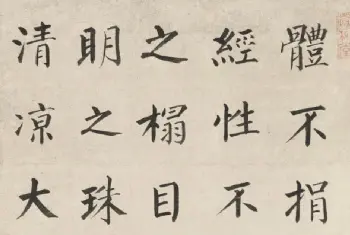 體不捐
經性不
之榻目
明之珠
清凉大